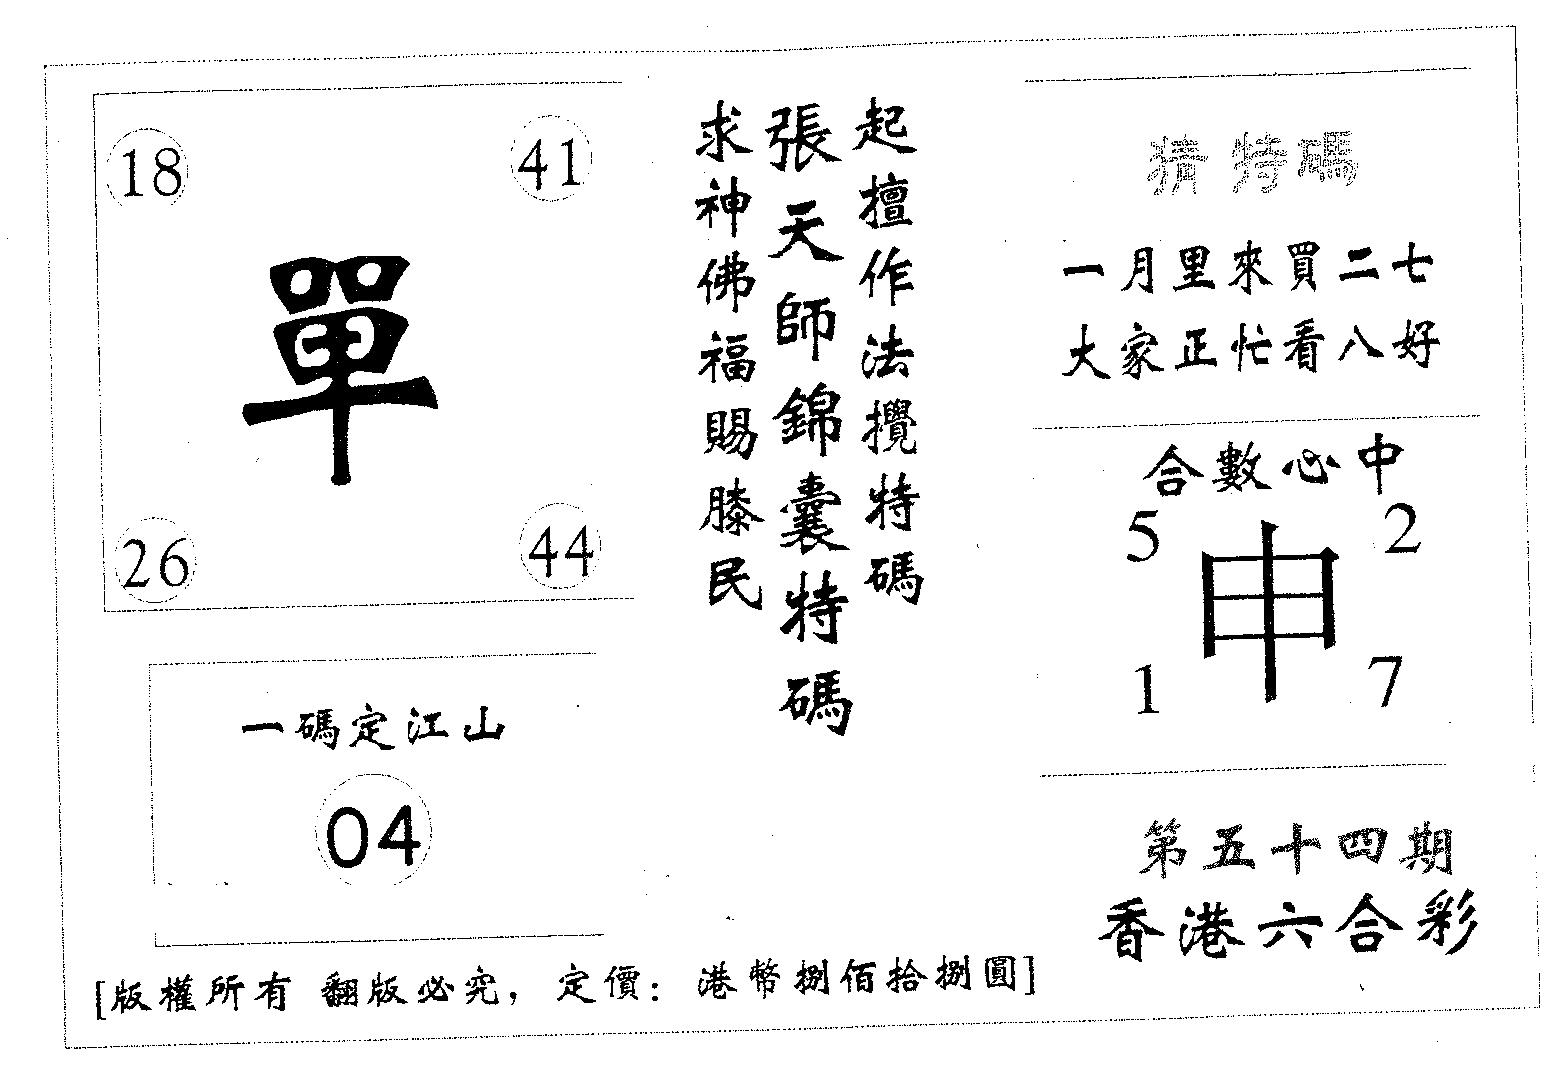 18 41
單
26 44
一碼定江山
04
起擅作法攪特碼
張天師錦囊特碼
求神佛福賜膝民
猜特碼
一月里來買二七
大家正忙看八好
合數必中
5 2
申
1 7
第五十四期
香港六合彩
[版權所有 翻版必究，定價：港幣捌佰拾捌圓]